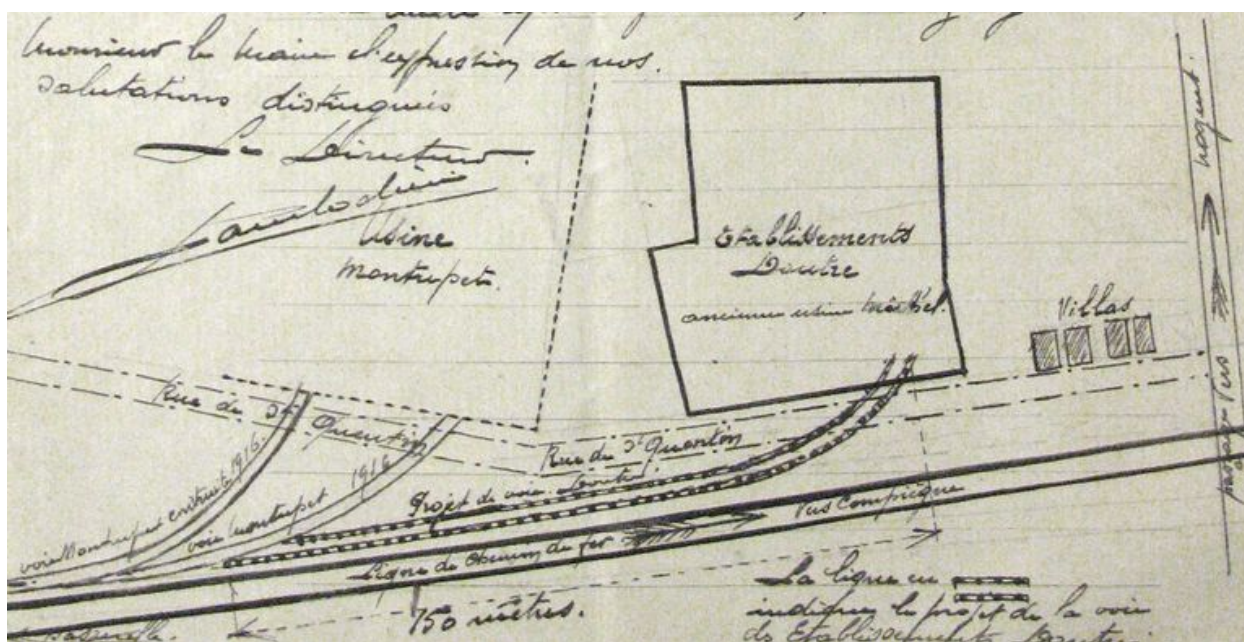 Monsieur le Maire l'expression de nos
salutations distinguées
Le Directeur.
Usine
Montupet.
Etablissements
Doutre
ancienne usine
Villas
passage vers Nogent.
Rue de St Quentin
Rue de St Quentin
voie Montupet construite 1916.
voie Montupet 1916
Projet de voie Doutre
Ligne de Chemin de fer
Vers Compiègne
150 mètres.
passerelle.
La ligne en
indique le projet de la voie
des Etablissements Doutre